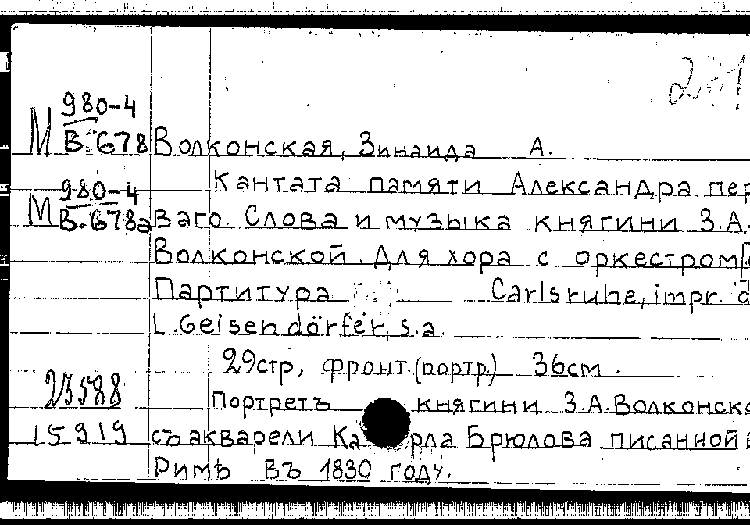 2-1
980-4
М В.678 Волконская, Зинаида А.
Кантата памяти Александра пер
980-4
М В.678а ваго. Слова и музыка княгини З.А.
Волконской. Для хора с оркестром
Партитура Carlsruhe, impr. d
L. Geisendörfer, s.a.
29стр, фронт.(портр.) 36см.
23588 Портретъ княгини З.А.Волконско
15919 съ акварели Ка рла Брюлова писанной в
Римѣ въ 1830 году.